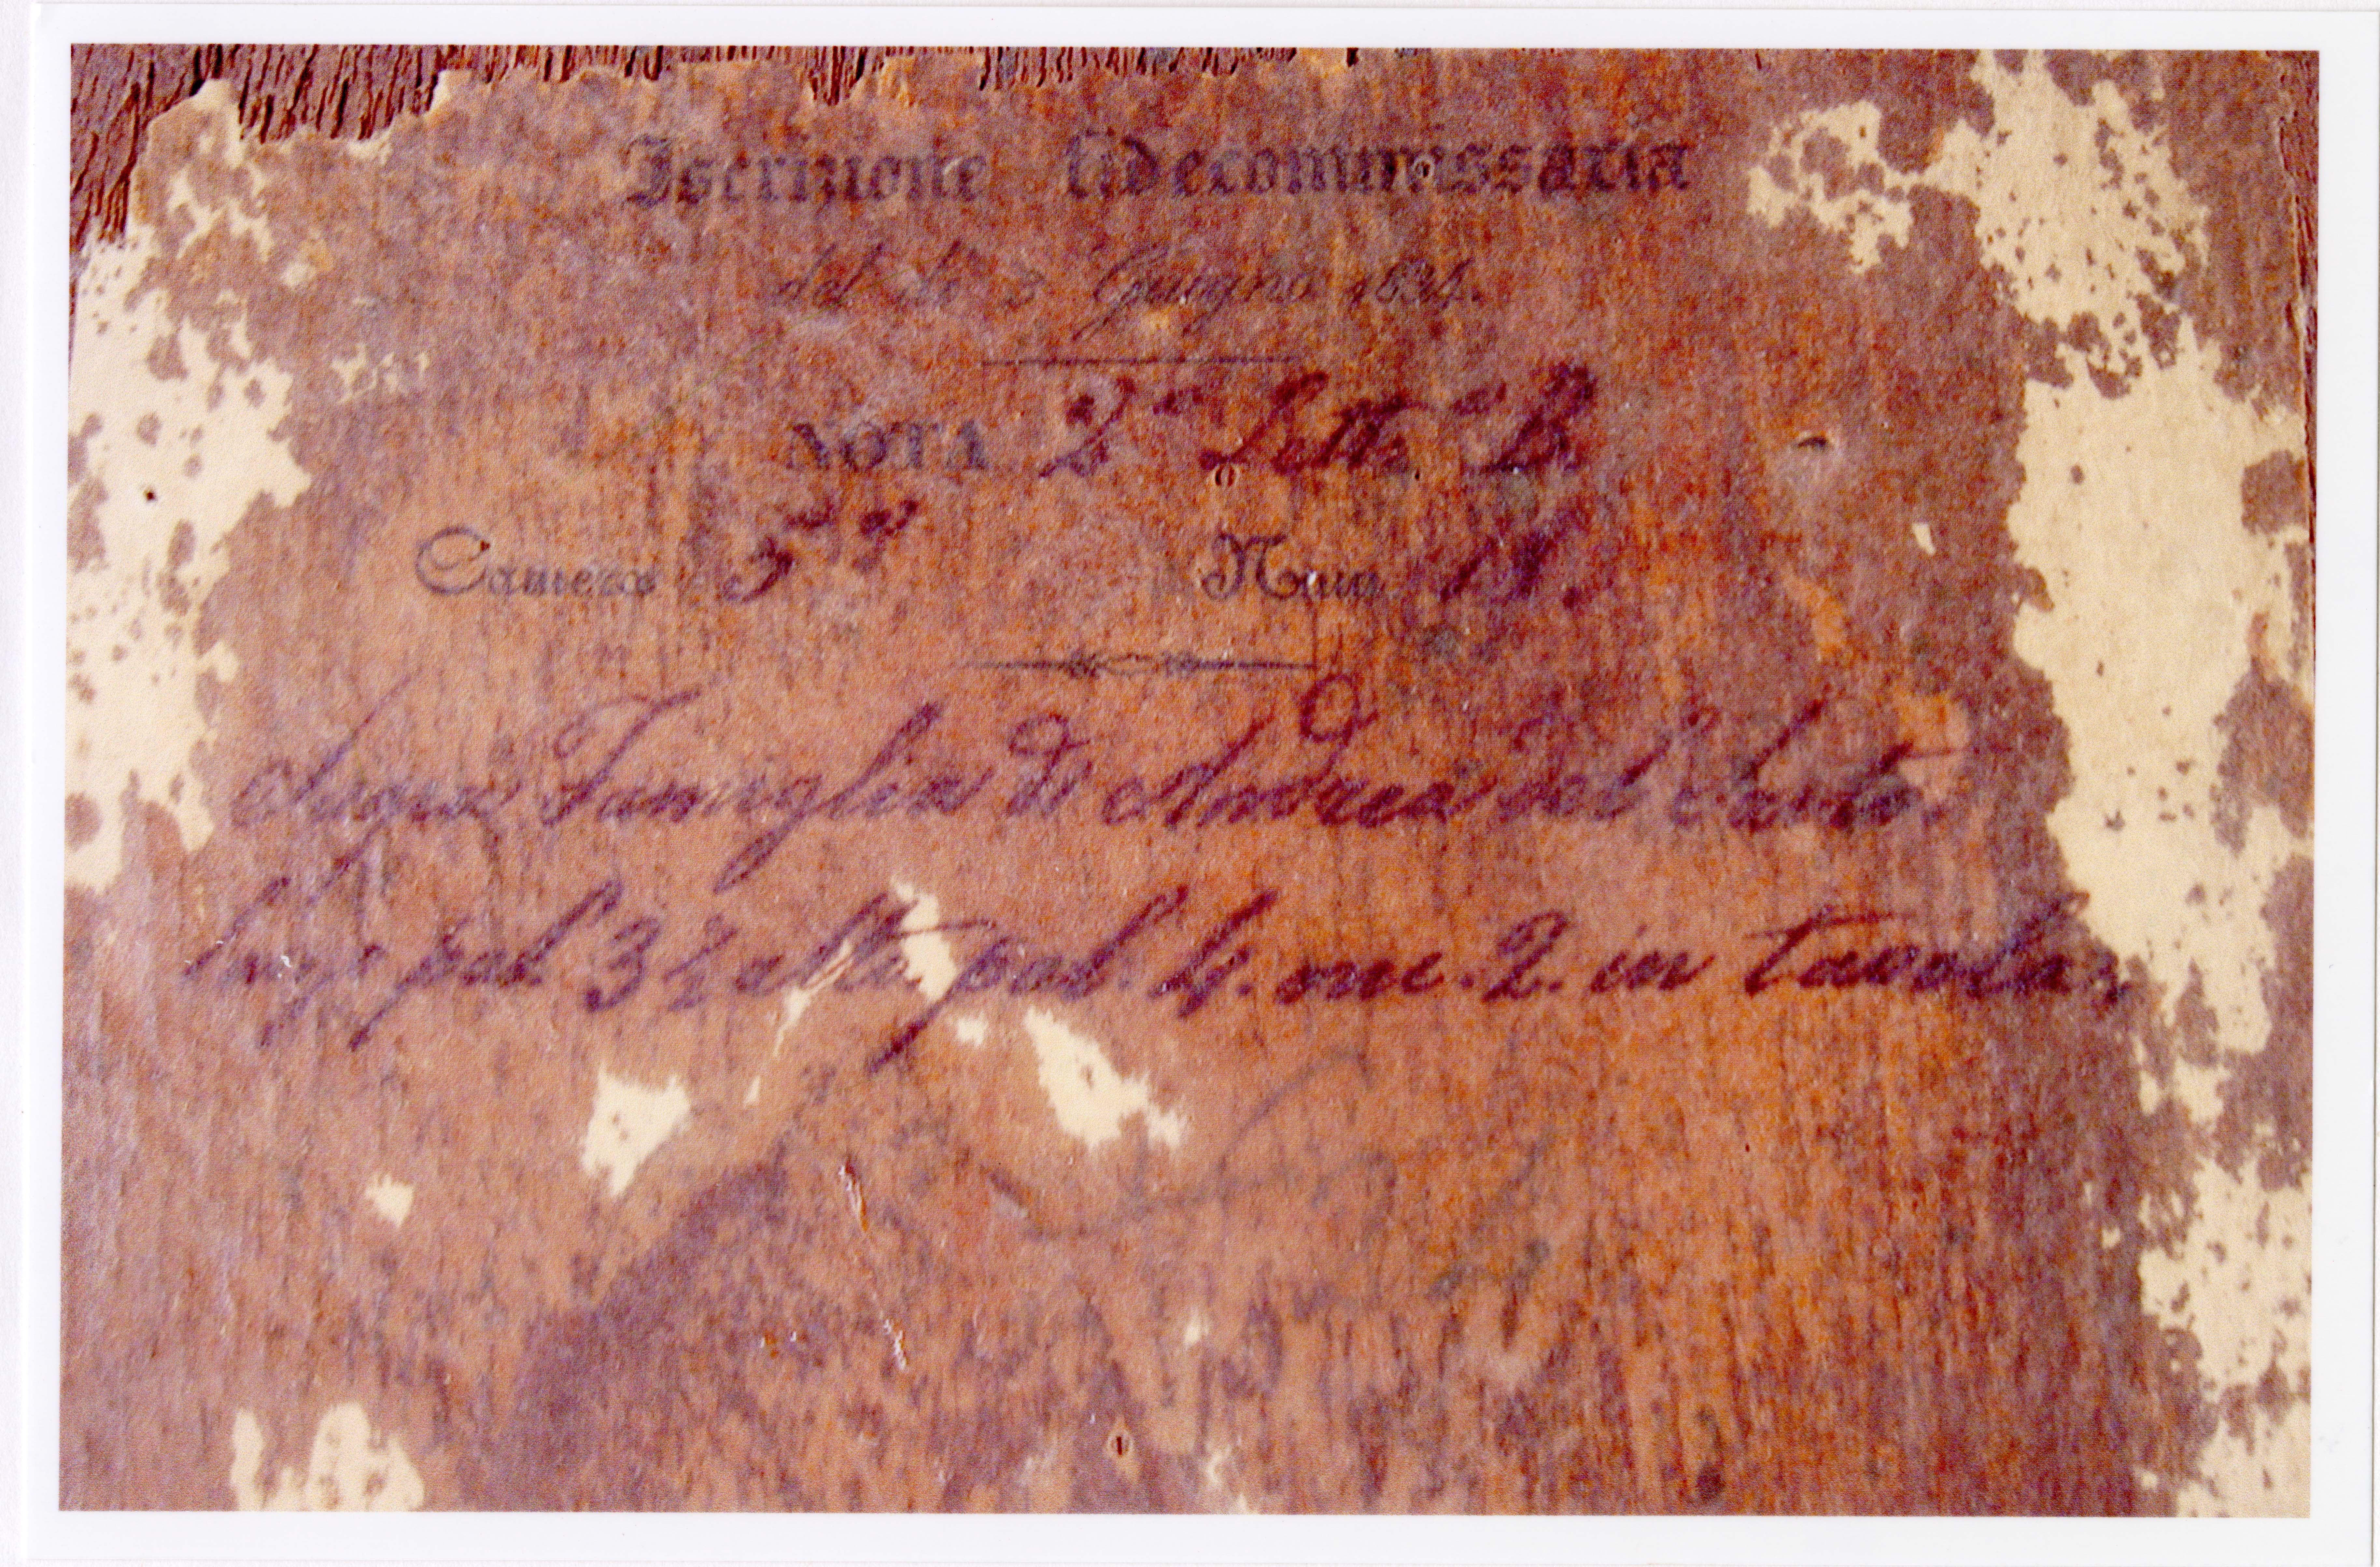 Iscrizione fidecommissaria
del dì 3 Giugno 1834.
NOTA 2a Letta B.
Camera 5a Num. 18.
Sagra Famiglia di Andrea del Sarto.
larga pal 3 ½ alta pal. 4. on. 2. in tavola,